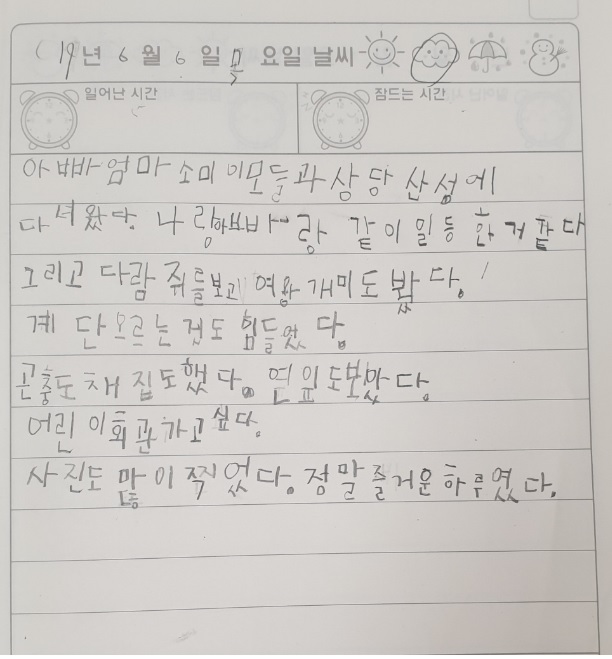 19년 6월 6일 목요일 날씨
일어난 시간
잠드는 시간
아빠바엄마 소미 이모들과 상당 산성에
다녀왔다. 나랑하빠바랑 같이 일등 한거 같다
그리고 다람쥐를보고 여왕 개미도 밨다.
계단 오르는 겄도 힘들었다.
곤충도 채집도했다. 연꽃도보았다.
어린이회관가고싶다.
사진도 많이 찍었다. 정말 즐거운 하루였다.